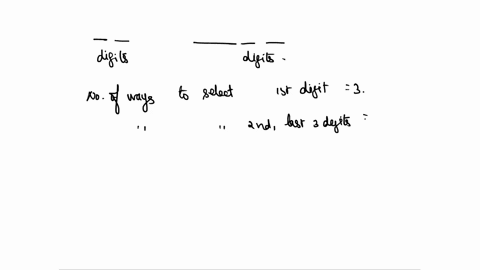 digits digits.
No. of ways to select 1st digit = 3.
" " 2nd, last 3 digits =